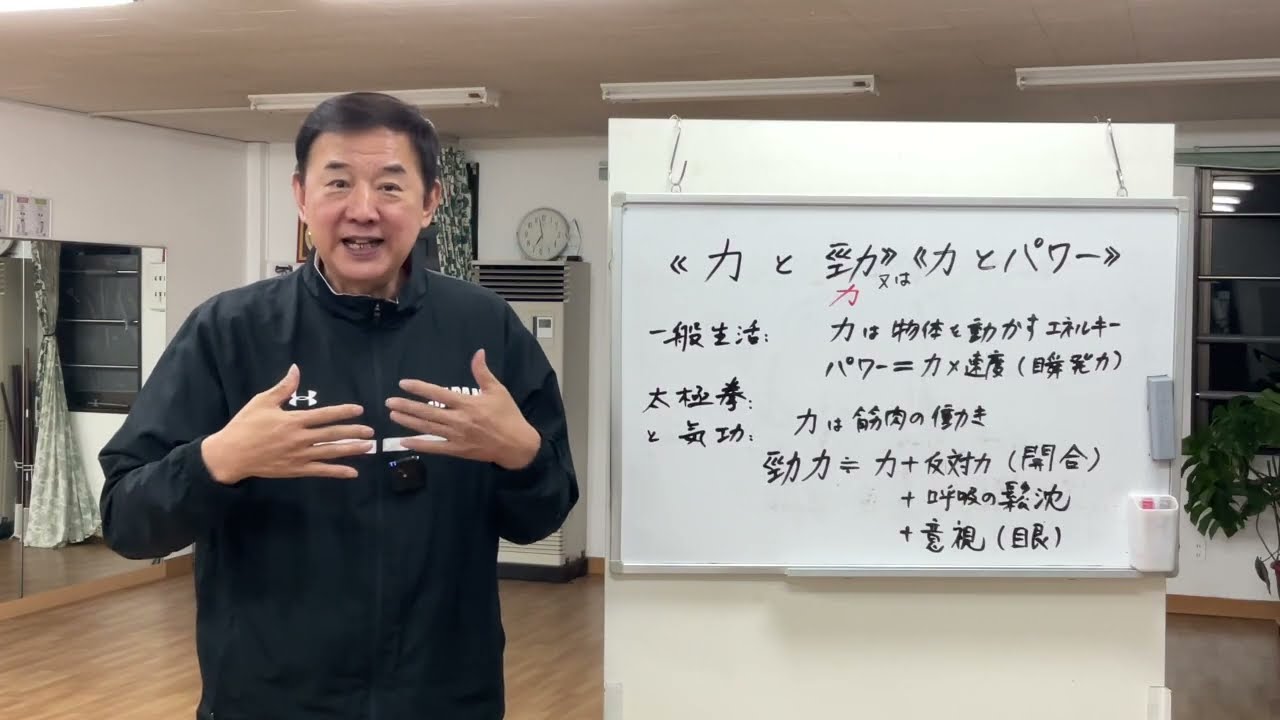 《力と勁》又は《力とパワー》
力
一般生活: 力は物体を動かすエネルギー
パワー=力×速度(瞬発力)
太極拳:
と気功: 力は筋肉の働き
勁力≒力+反対力(開合)
+呼吸の鬆沈
+意視(目艮)